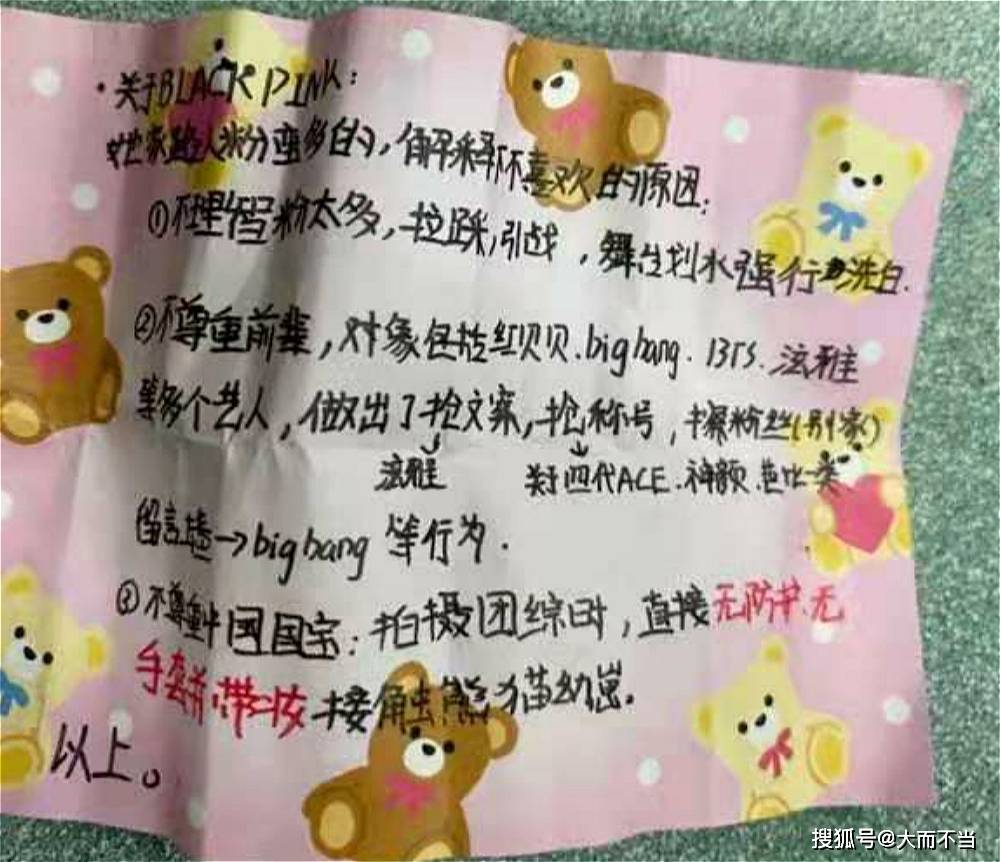 ·关于BLACKPINK:
她家路人粉蛮多的,解释不喜欢的原因:
①不理智粉太多,拉踩,引战,舞台划水强行洗白.
②不尊重前辈,对象包括红贝贝.bigbang.BTS.泫雅
等多个艺人,做出了抢文案,抢称号,撵粉丝(别家)
泫雅 关于四代ACE.神颜.芭比一类
留言墙→bigbang等行为.
③不尊重中国国宝:拍摄团综时,直接无防护.无
手套并带妆接触熊猫幼崽。
以上。
搜狐号@大而不当